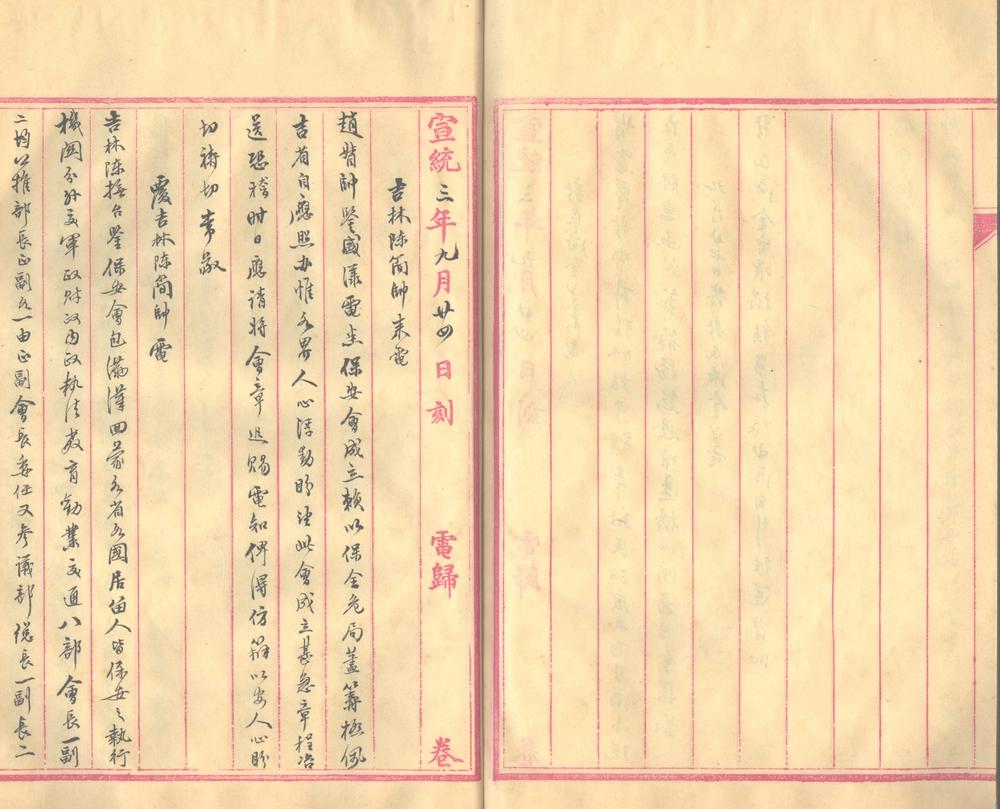 宣統三年九月廿四日刻 電歸 卷
吉林陳簡帥來電
趙督帥鑒國漾電悉保安會成立賴以保全危局蓋籌極佩
吉省自應照办惟各界人心浮動盼望此會成立甚急章程冶
送恐稽時日應請將會章迅賜電知俾得仿辦以安人心盼
切禱切常敬
覆吉林陳簡帥電
吉林陳撫台鑒保安會包滿漢回蒙各省各國居留人皆保安之執行
機關分外交軍政財政內政執法教育勸業交通八部會長一副
二均公推部長正副各一由正副會長委任又參議部總長一副長二